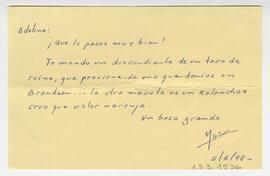 Adelina:
¡Que lo pases muy bien!
Te mando un descendiente de un taco de
reina, que proviene de uno que tenías en
Brandsen... la otra maceta es un Kalanchoe
creo que color naranja.
Un beso grande
5/6/98-
13.3.1536